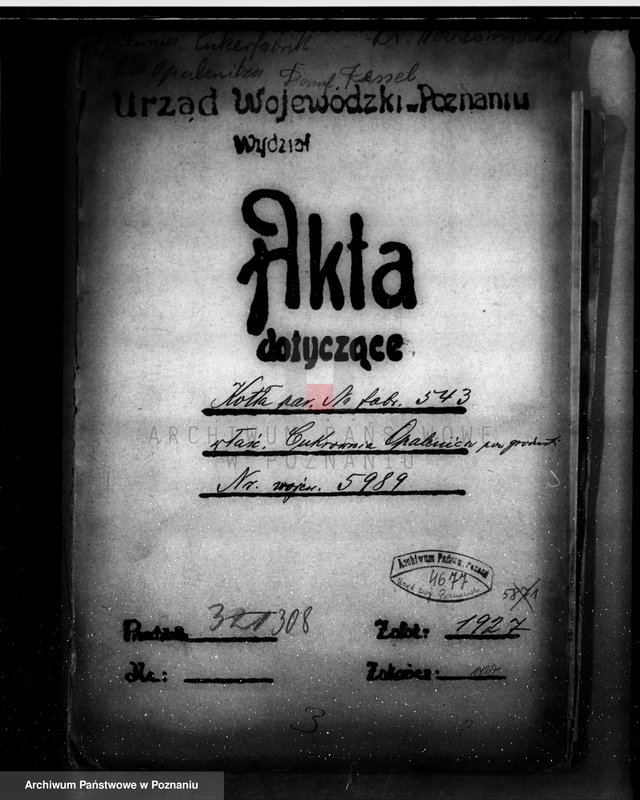 Cukerfabrik
Opalenitza Dampf. Kessel
Urząd Wojewódzki w Poznaniu
Wydział
Akta
dotyczące
Kotła par. No fabr. 543
właśc. Cukrownia Opalenica pow. grodzisk
Nr. wojew. 5989
ARCHIWUM PAŃSTWOWE
W POZNANIU
Archiwum Państw. w Poznań
4677
5871
308
Założ.: 1927
Nr.:
Zakończ.:
3
Archiwum Państwowe w Poznaniu